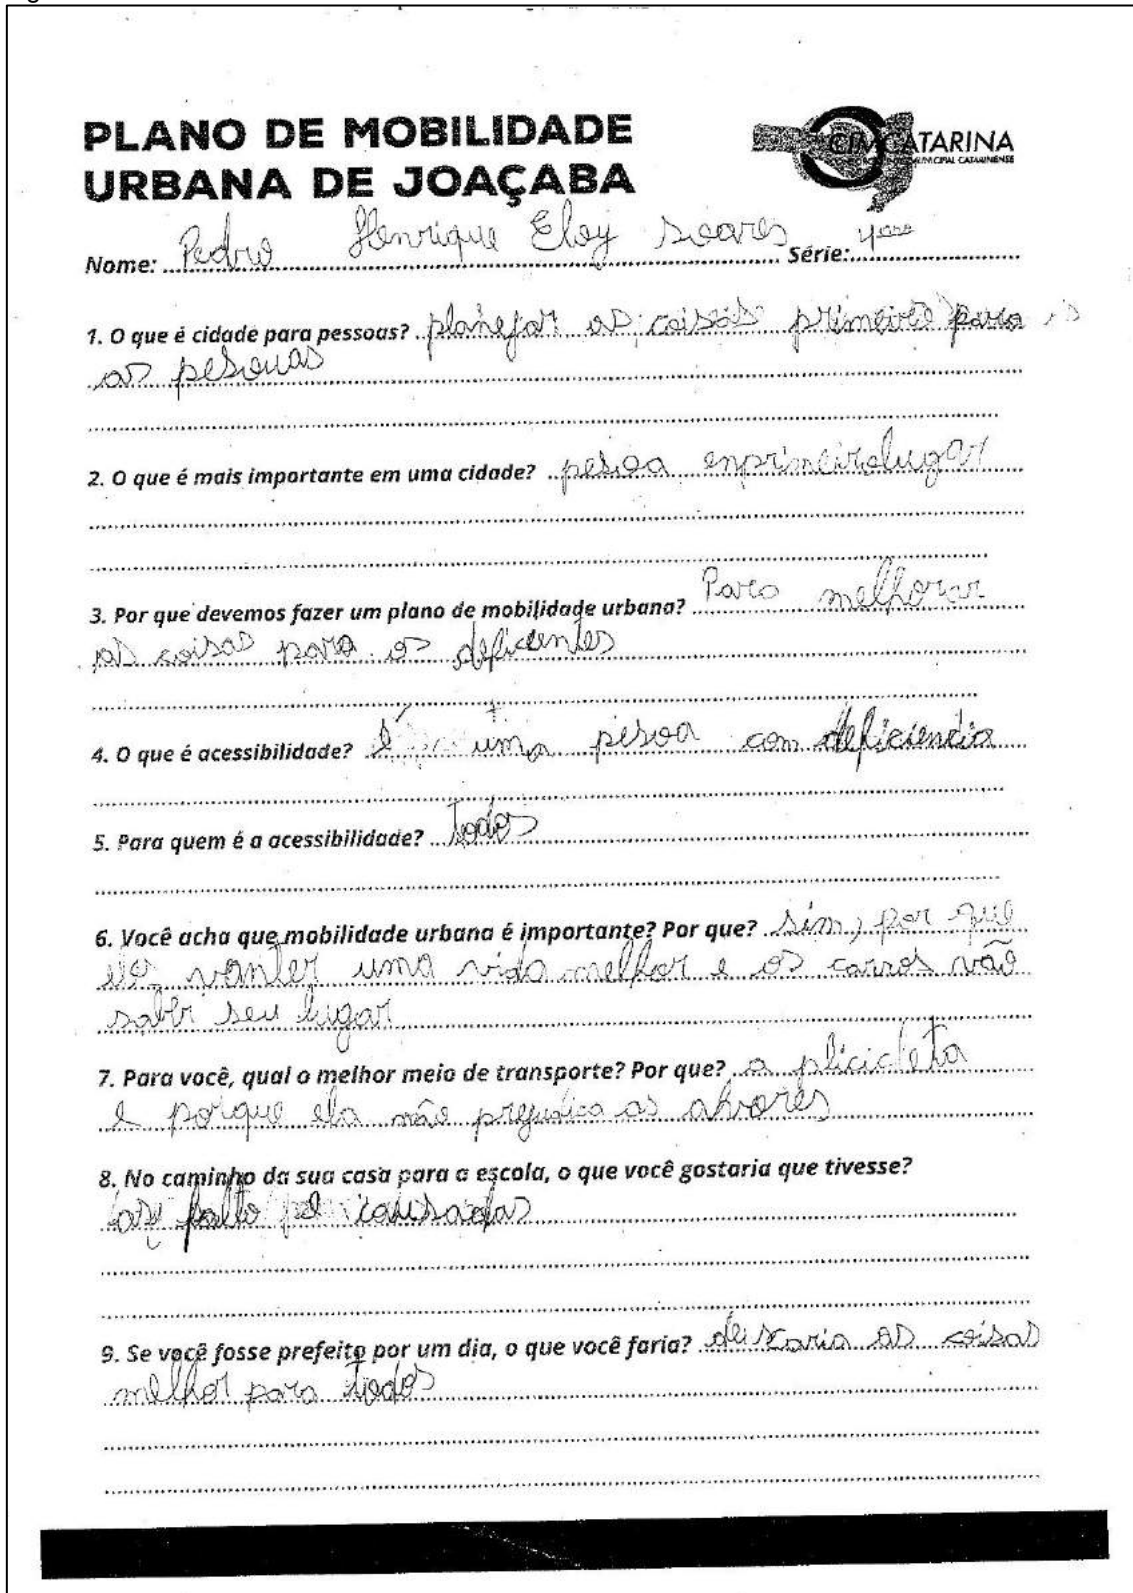 PLANO DE MOBILIDADE
URBANA DE JOAÇABA
CIMCATARINA
Nome: Pedro Henrique Eloy Soares Série: 4º ano
1. O que é cidade para pessoas? planejar as coisas primeiro para
as pesouas
2. O que é mais importante em uma cidade? pesoa enprimeirolugar
3. Por que devemos fazer um plano de mobilidade urbana? Para melhorar
as coisas para os deficientes
4. O que é acessibilidade? É uma pesoa com deficiencia
5. Para quem é a acessibilidade? todos
6. Você acha que mobilidade urbana é importante? Por que? sim, por que
vanter uma vida melhor e os carros vão
saber seu lugar
7. Para você, qual o melhor meio de transporte? Por que? a plicicleta
e porque ela não prejudica as ahvores
8. No caminho da sua casa para a escola, o que você gostaria que tivesse?
falto causadas
9. Se você fosse prefeito por um dia, o que você faria? deixaria as coisas
melhor para todos